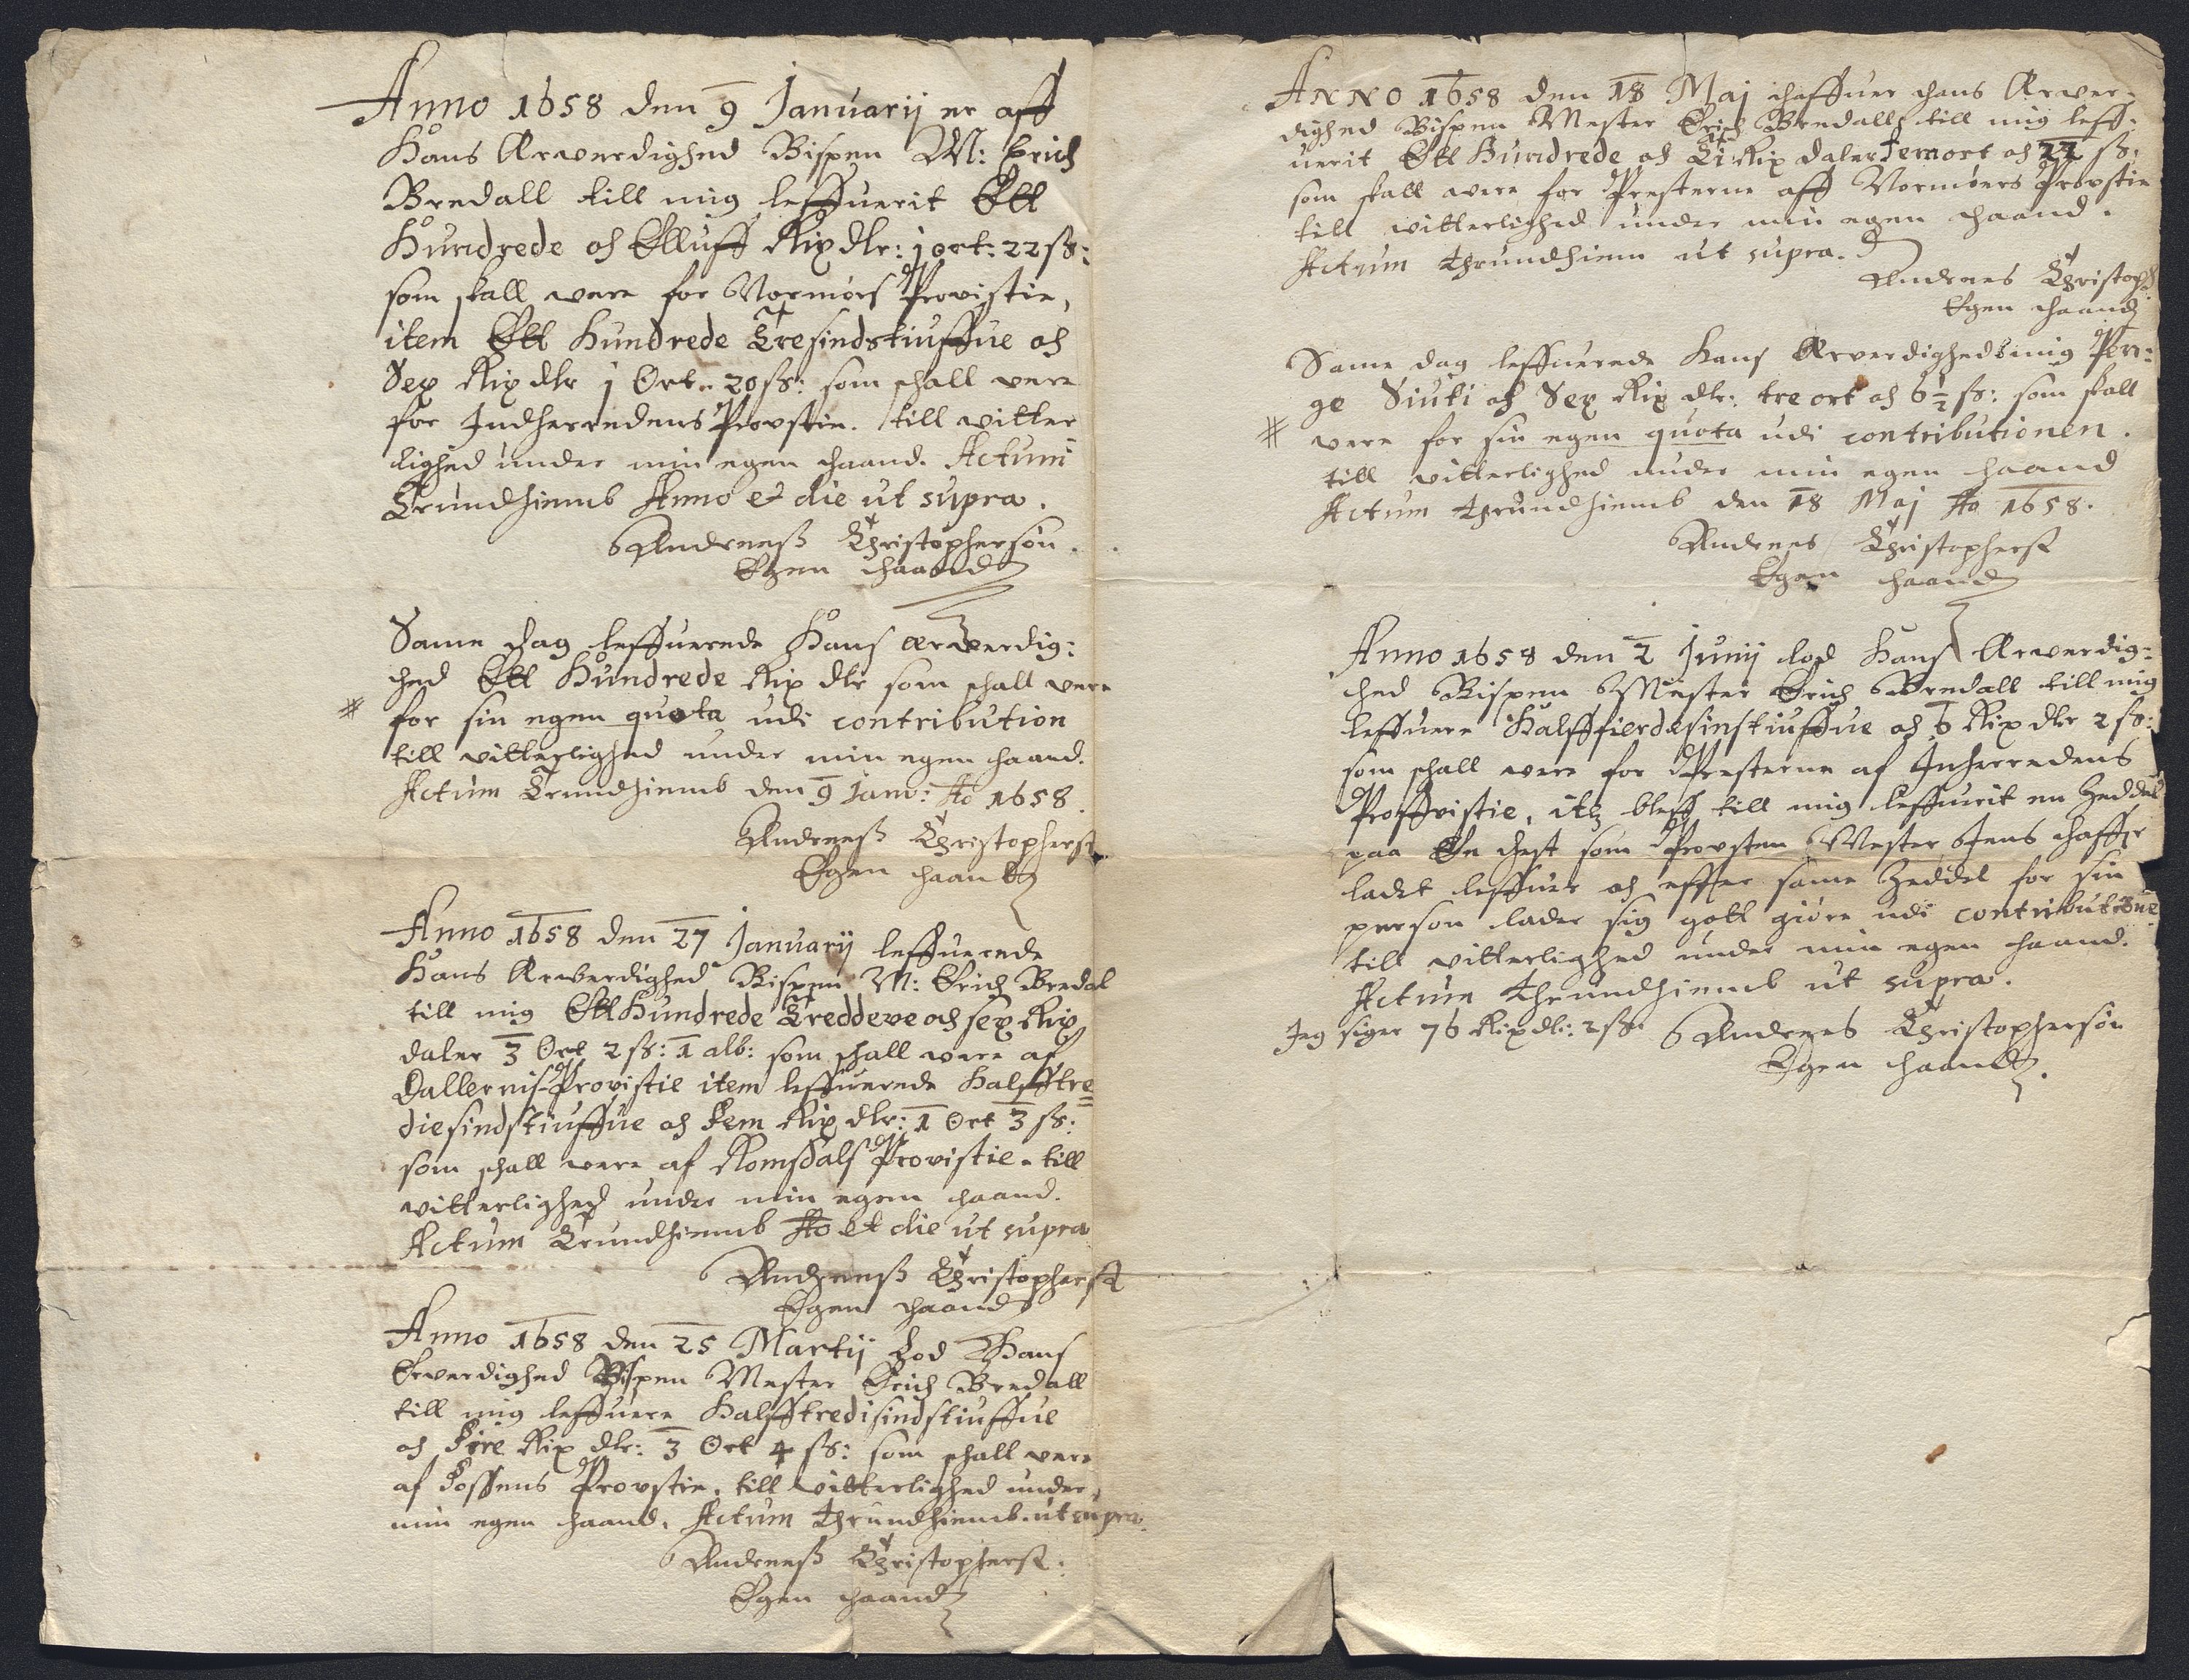 Anno 1658 den 9 Januarij er aff
Hans Ærwerdighed Bispen M: Erich
Bredall till mig leffuerit Ett
Hundrede och Elluff Rix dlr: j ort: 22 sß:
som skall were for Normørs Provistie,
item Ett Hundrede Tresindstiuffue och
Sex Rix dlr j Ort. 20 sß: som schall vere
for Indherredens Provstie. till vitter
lighed under min egen haand. Actum
Trundhiemb Anno et die ut supra.
Andreneß Christophersøn.
Egen haand
Same dag leffuerede Hans ærwerdig:
hed Ett Hundrede Rix dlr som schall vere
# for sin egen quota udi contribution
till vitterlighed under min egen haand.
Actum Trundhiemb den 9 Janv: Ao 1658.
Andreneß Christophers
Egen haand
Anno 1658 den 27 Januarij leffuerede
Hans Ærwerdighed Bispen M: Erich Bredal
till mig Ett Hundrede Treddeve och sex Rix
daler 3 Ort 2 sß: 1 alb: som schall were af
Dallernis Provistie item leffuerede Halfftre
diesindstiuffue och fem Rix dlr: 1 Ort 3 sß:
som schall were af Romsdals Provistie. till
vitterlighed under min egen haand.
Actum Trundhiemb Ao et die ut supra
Andreneß Christophers
Egen haand
Anno 1658 den 25 Martij Lod Hans
Erverdighed Bispen Mester Erich Bredall
till mig leffuere Halfftredisindstiuffue
och Fire Rix dlr: 3 Ort 4 sß: som schall vere
af Fossens Provstie. till vitterlighed under
min egen haand. Actum Thrundhiemb. ut supra.
Andreneß Christophers:
Egen haand
ANNO 1658 den 18 Maj haffuer hans Ærwer-
dighed Bispen Mester Erich Bredall till mig leff:
uerit Ett Hundrede och Ti Rix daler Femort och 22 sß:
som skall were for Presterne aff Normøers Provstie
till vitterlighed under min egen haand.
Actum Thrundhiem ut supra.
Andrenes Christoph
Egen haand
Same dag leffuerede Hans Ærverdighed mig Pen:
ge Siuti och Sex Rix dlr: tre ort och 6½ sß: som skall
# vere for sin egen quota udi contributionen.
till vitterlighed under min egen haand
Actum Thrundhiemb den 18 Maj Ao 1658.
Andrenes Christophers
Egen haand
Anno 1658 den 2 Junij lod Hans Ærverdig-
hed Bispen Mester Erich Bredall till mig
leffuere Halffierdesinstiuffue och 6 Rix dlr 2 sß:
som schall were for Presterne af Inherredens
Proffvistie, item bleff till mig leffuerit en Zeddel
paa En hest som Provsten Mester Jens haffr
ladet leffuer och effter same Zeddel for sin
person lader sig gott giøre udi contributione
till vitterlighed under min egen haand.
Actum Thrundhiemb ut supra.
Jeg siger 76 Rixdlr: 2 sß. Andrenes Christophersøn
Egen haand.